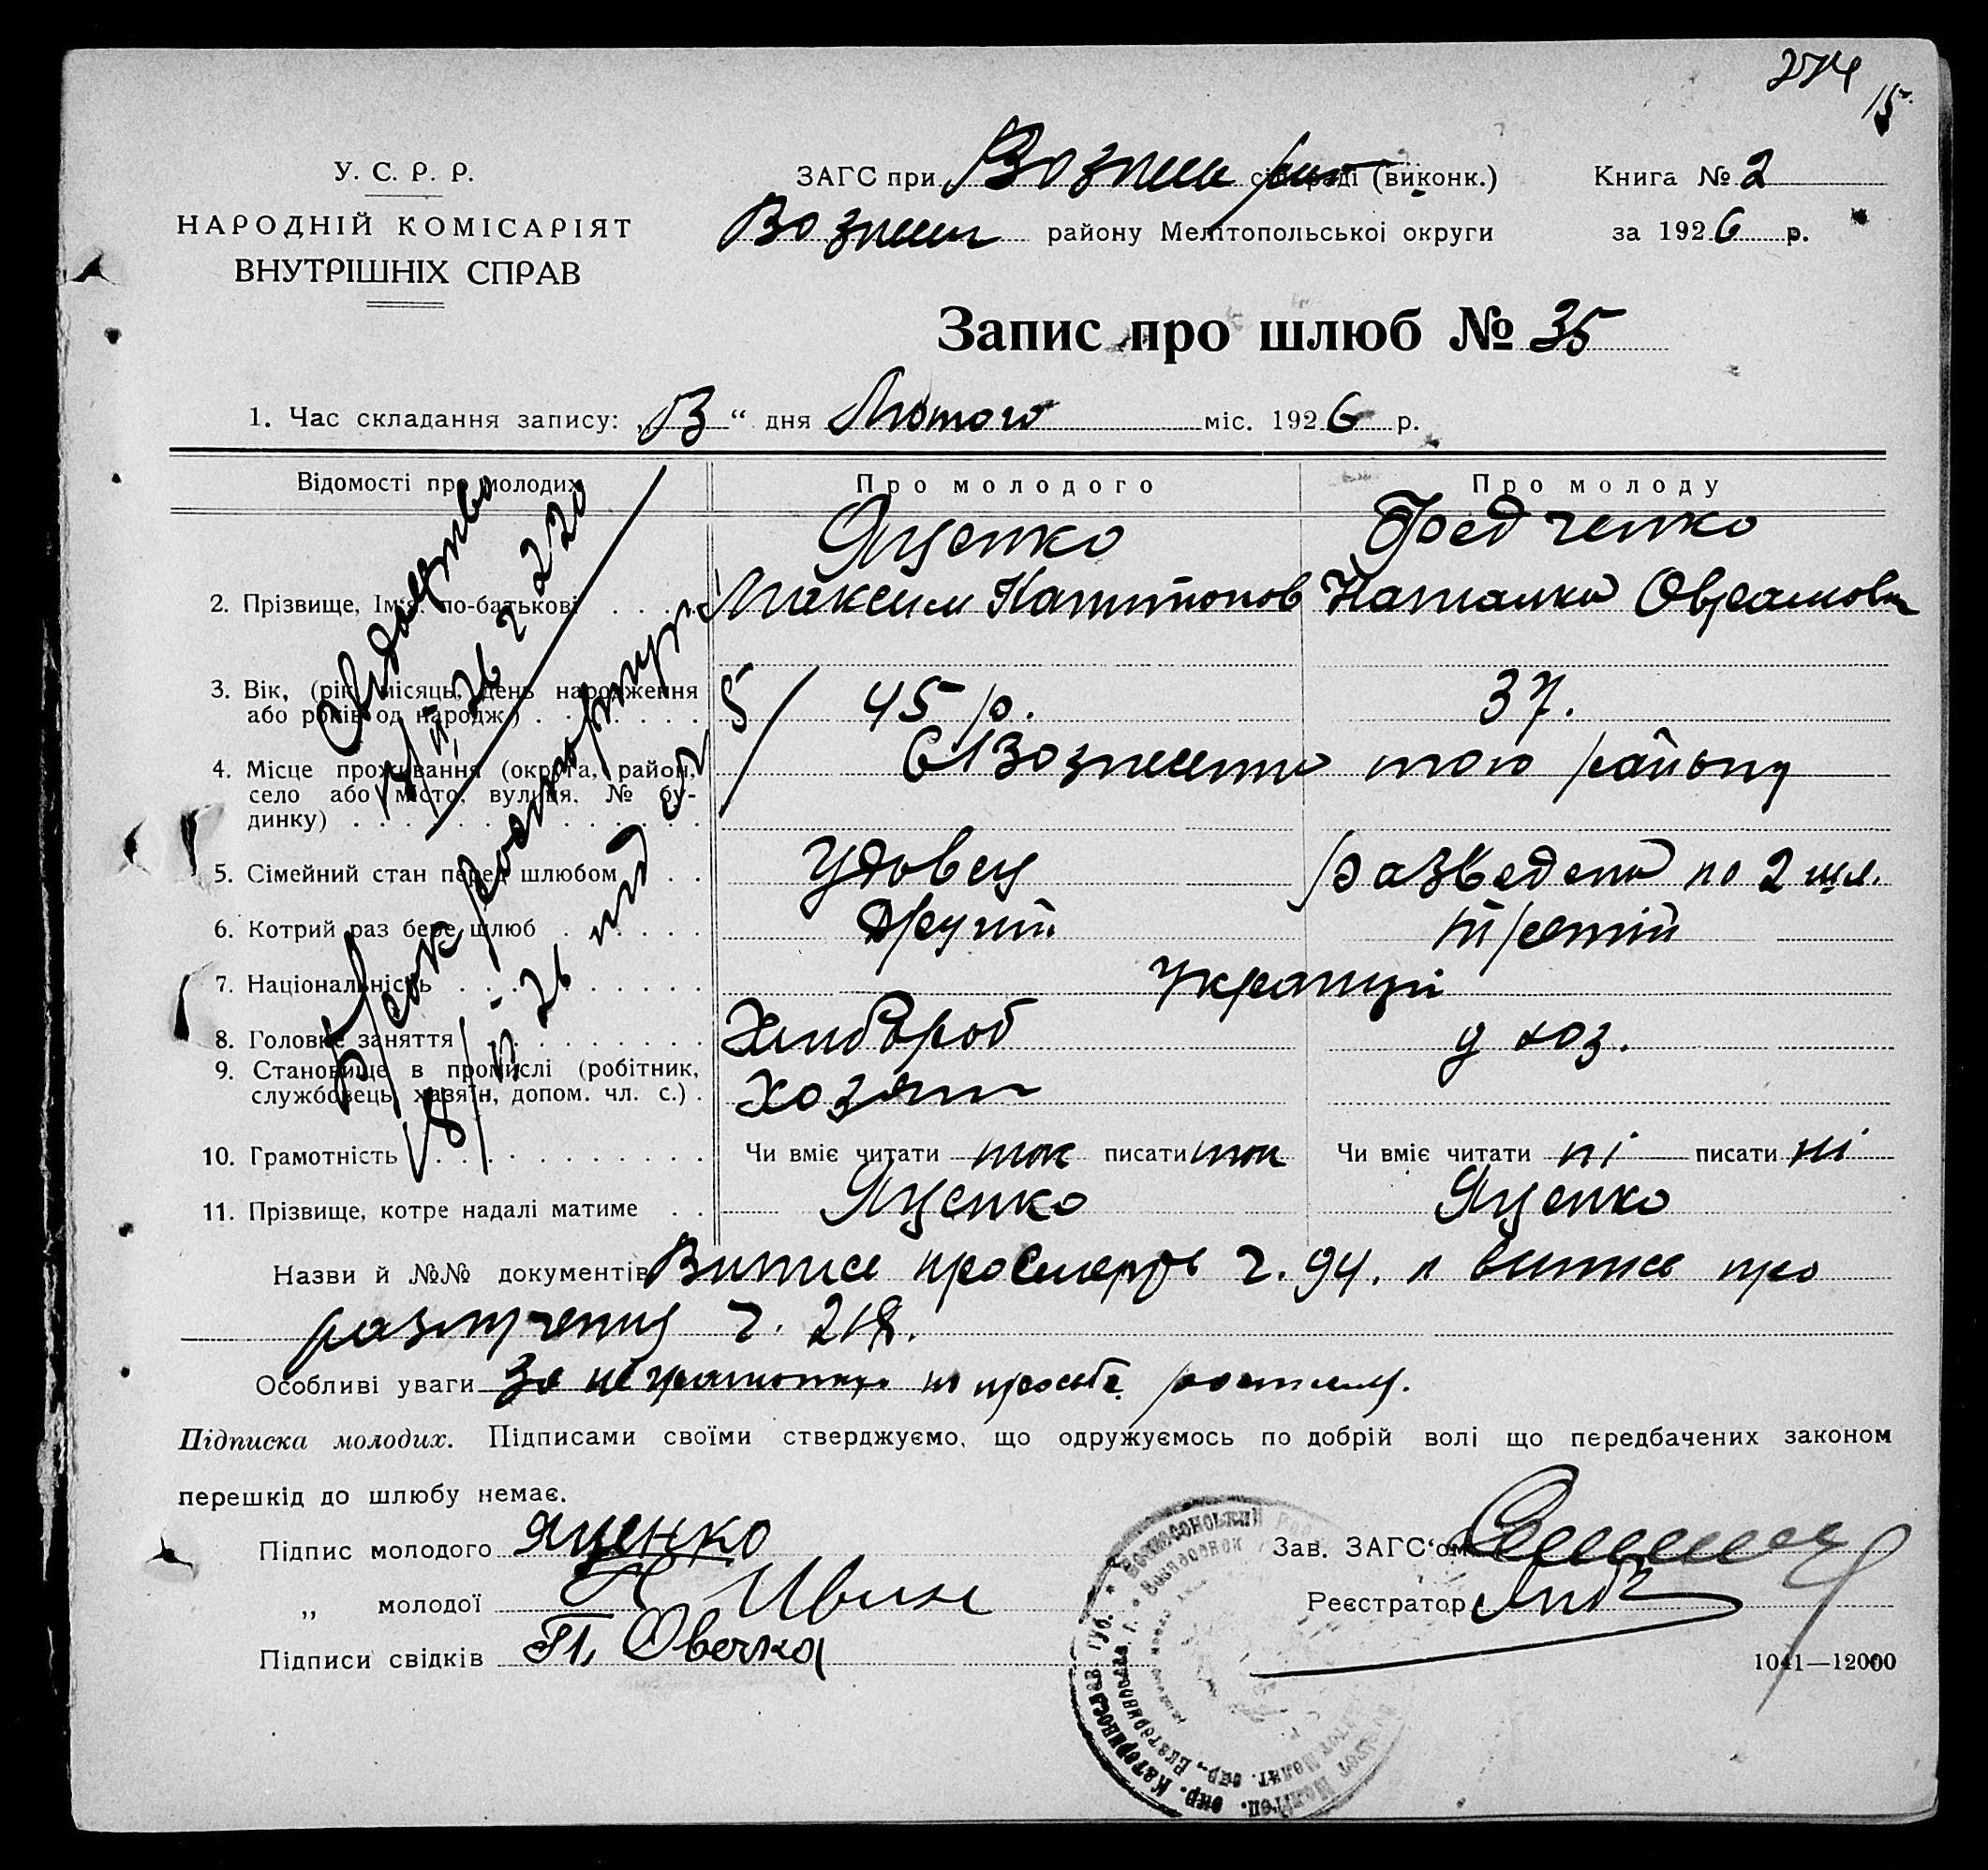 274
15
У. С. Р. Р.
НАРОДНІЙ КОМІСАРІЯТ
ВНУТРІШНІХ СПРАВ
ЗАГС при Возне сільраді (виконк.)
Книга № 2
Вознесен району Мелітопольської округи
за 1926 р.
Запис про шлюб № 35
1. Час складання запису: „13“ дня Лютого міс. 1926 р.
Відомості про молодих
Про молодого
Про молоду
Яценко
2. Прізвище, Ім'я, по-батькові . . . . Максим Капитонов Наталка Оврамовн
3. Вік, (рік, місяць, день народження
або років од народж.) . . . . . . . 45 р. 37.
4. Місце проживання (округа, район,
село або місто, вулиця, № бу-
динку) . . . . . . . . . . . . . .
С Вознесенка того району
5. Сімейний стан перед шлюбом . . Удовец разведена по 2 шл.
6. Котрий раз бере шлюб . . . . . . Другий третій
7. Національність . . . . . . . . . . Українці
8. Головне заняття . . . . . . . . . Хлибороб д хоз.
9. Становище в промислі (робітник,
службовець, хазяїн, допом. чл. с.) . Хозяин
10. Грамотність . . . . . . . . . . . Чи вміє читати так писати так Чи вміє читати ні писати ні
11. Прізвище, котре надалі матиме . . Яценко Яценко
Свидоцтво
13/II 26 г 220
Брак расторгнут
18/II - 26 под
Назви й №№ документів Випись про смерть ч. 94. и випись про
разлучения ч. 218.
Особливі уваги За неграмотную по просьбе
Підписка молодих. Підписами своїми стверджуємо, що одружуємось по добрій волі що передбачених законом
перешкід до шлюбу немає.
Підпис молодого Яценко
„ молодої
Підписи свідків П. Овечка
Зав. ЗАГС'ом
Реєстратор
1041—12000